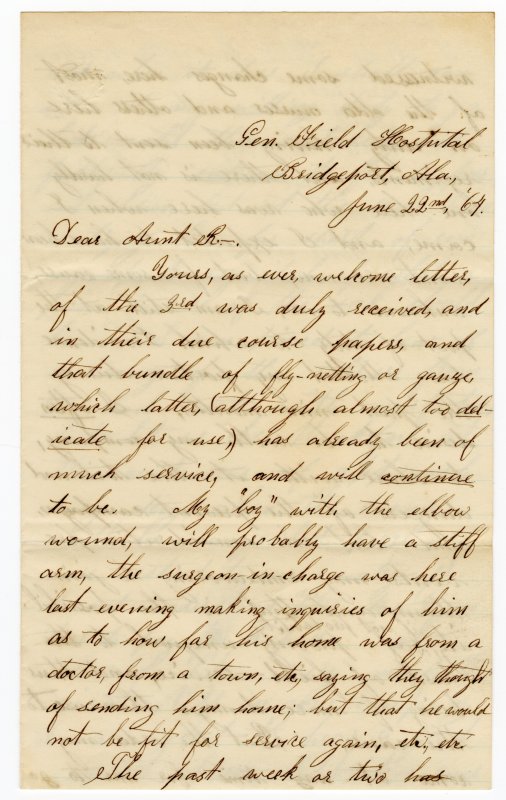 Gen. Field Hospital
Bridgeport, Ala.,
June 22nd, '64.
Dear Aunt R—.
Yours, as ever, welcome letter,
of the 3rd was duly received, and
in their due course papers, and
that bundle of fly-netting or gauze,
which latter, (although almost too del-
icate for use,) has already been of
much service, and will continue
to be. My "boy" with the elbow
wound, will probably have a stiff
arm, the surgeon-in-charge was here
last evening making inquiries of him
as to how far his home was from a
doctor, from a town, etc, saying they thought
of sending him home; but that he would
not be fit for service again, etc, etc.
The past week or two has